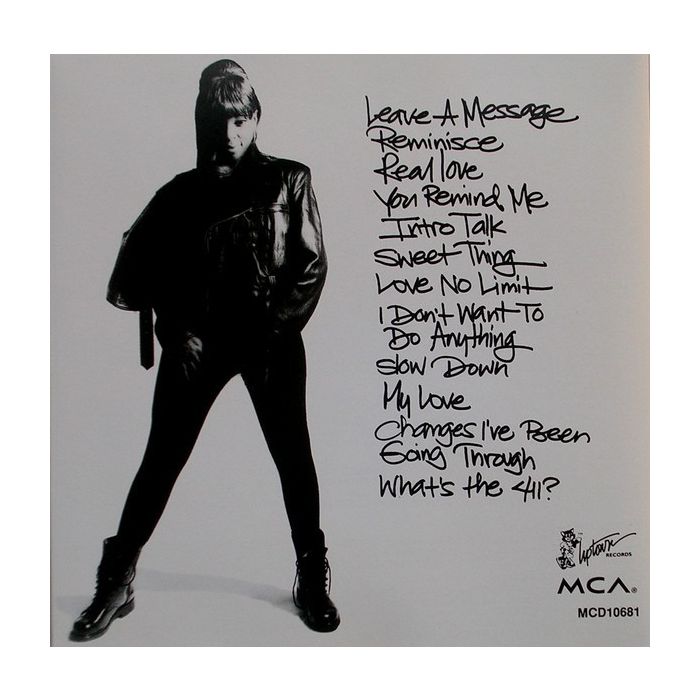 Leave A Message
Reminisce
Real love
You Remind Me
Intro Talk
Sweet Thing
Love No Limit
I Don't Want To
Do Anything
Slow Down
My Love
Changes I've Been
Going Through
What's the 411?
Uptown
RECORDS
MCA®
MCD10681